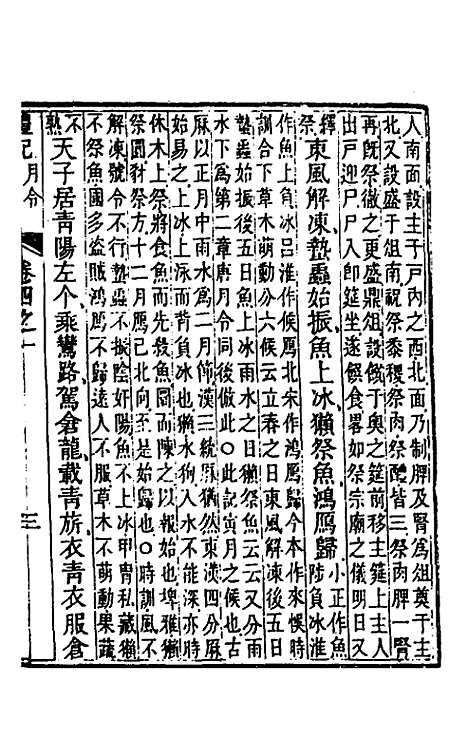 人南面設主于戶內之西北面乃制脾及腎為俎奠于主
北又設盛于俎南祝祭黍稷祭肉祭醴皆三祭肉脾一腎
再旣祭徹之更盛鼎俎設饌于奥之筵前移主筵上主人
出戶迎尸尸入卽筵坐遂饋食畧如祭宗廟之儀明日又
繹祭東風解凍蟄蟲始振魚上冰獺祭魚鴻鴈歸小正作魚陟負冰淮
作魚上負冰呂淮作候鴈北宋作鴻鴈歸今本作來候時
訓合下草木萌動分六候云立春之日東風解凍後五日
蟄蟲始振後五日魚上冰雨水之日獺祭魚云云又分雨
水下為第二章唐月令同後倣此○此記寅月之候也古
厤以正月中雨水為二月節漢三統厤猶然東漢四分厤
始易之上冰上泳而背負冰也獺水狗入水不能深亦時
休木上祭將食魚而先殺魚圓而陳之以報始也埤雅獺
祭圓豺祭方十二月鴈已北向至是始歸也○時訓風不
解凍號令不行蟄蟲不振陰奸陽魚不上冰甲冑私藏獺
不祭魚國多盜賊鴻鴈不歸遠人不服草木不萌動果蔬
不熟天子居青陽左个乘鸞路駕倉龍載青旂衣青衣服倉
禮記月令 卷四之一 三